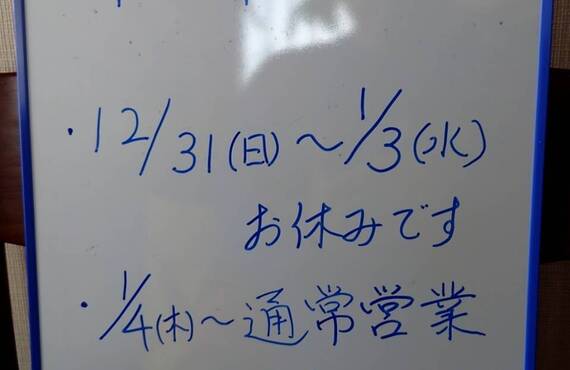 ・12/31(日)～1/3(水)
お休みです
・1/4(木)～通常営業